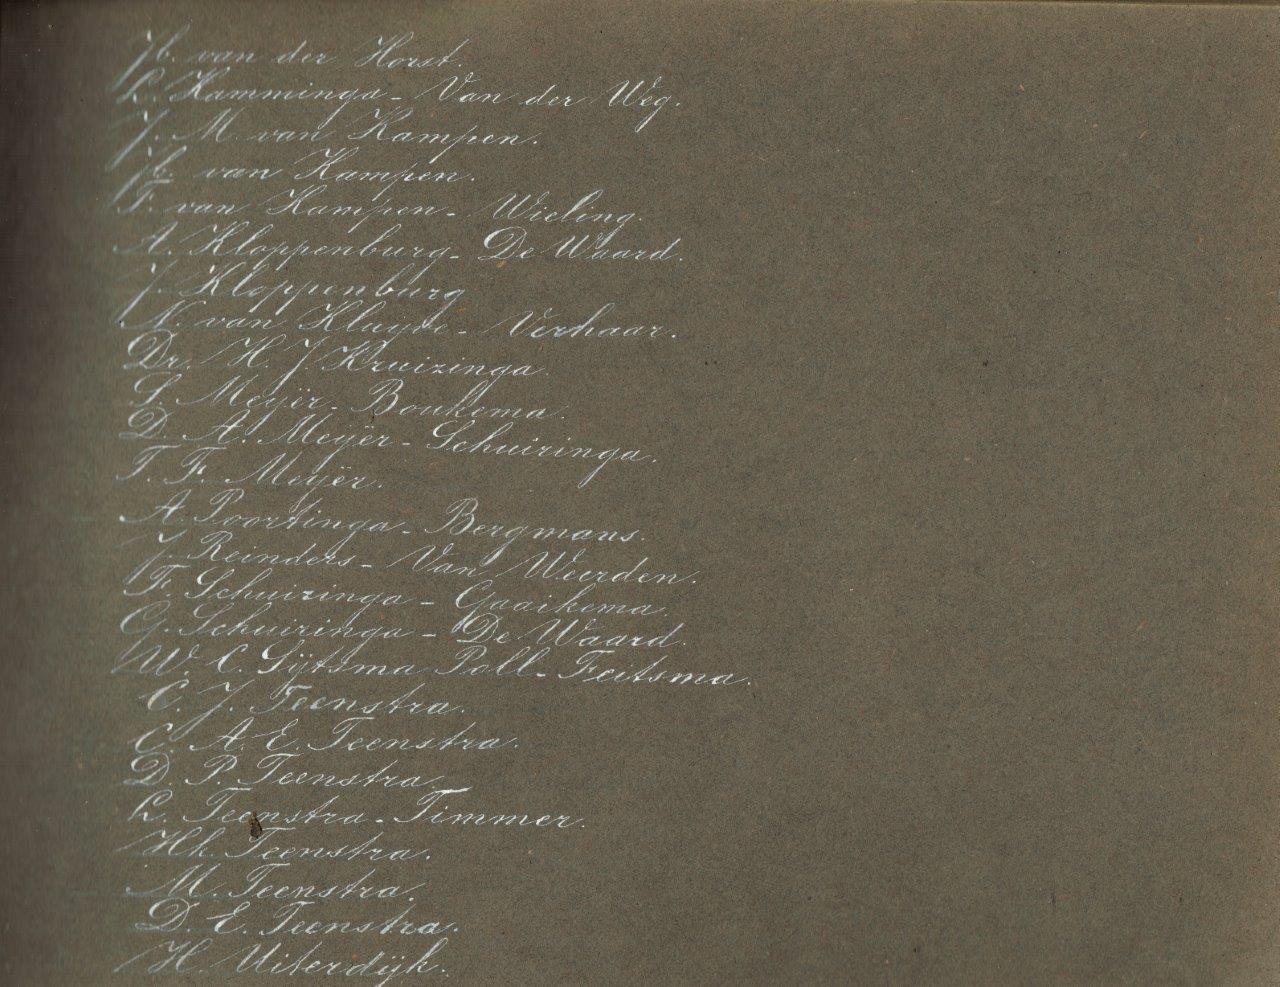 Jb. van der Horst.
L. Kamminga - Van der Weg.
J. M. van Kampen.
Jb. van Kampen.
F. van Kampen - Wieling.
A. Kloppenburg - De Waard.
J. Kloppenburg
N. van Kluyve - Verhaar.
Dr. H. J Kruizinga.
S. Meÿer - Boukema.
D. A. Meÿer - Schuiringa.
T. F. Meÿer.
A. Poortinga - Bergmans.
J. Reinders - Van Weerden.
F. Schuiringa - Gaaikema.
G. Schuiringa - De Waard.
W. C. Sÿtsma Poll - Feitsma.
C. J. Teenstra.
C. A. E. Teenstra.
D. P. Teenstra.
L. Teenstra - Timmer.
Hk. Teenstra.
M. Teenstra.
D. E. Teenstra.
H. Uiterdÿk.